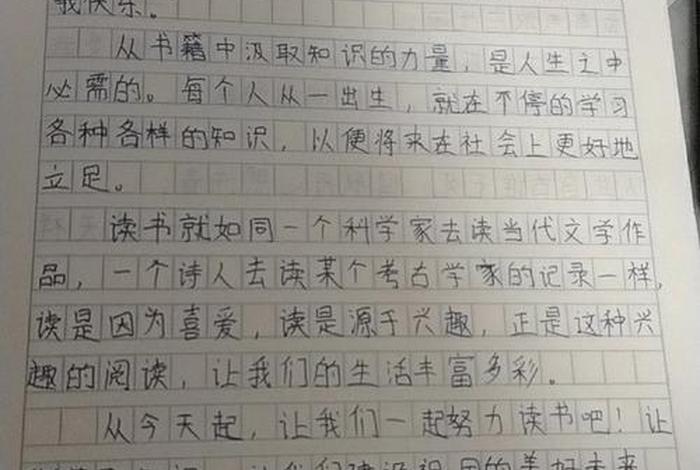 我快乐。
从书籍中汲取知识的力量，是人生之中
必需的。每个人从一出生，就在不停的学习
各种各样的知识，以便将来在社会上更好地
立足。
读书就如同一个科学家去读当代文学作
品，一个诗人去读某个考古学家的记录一样，
读是因为喜爱，读是源于兴趣，正是这种兴
趣的阅读，让我们的生活丰富多彩。
从今天起，让我们一起努力读书吧！让
让我们建设祖国的美好未来